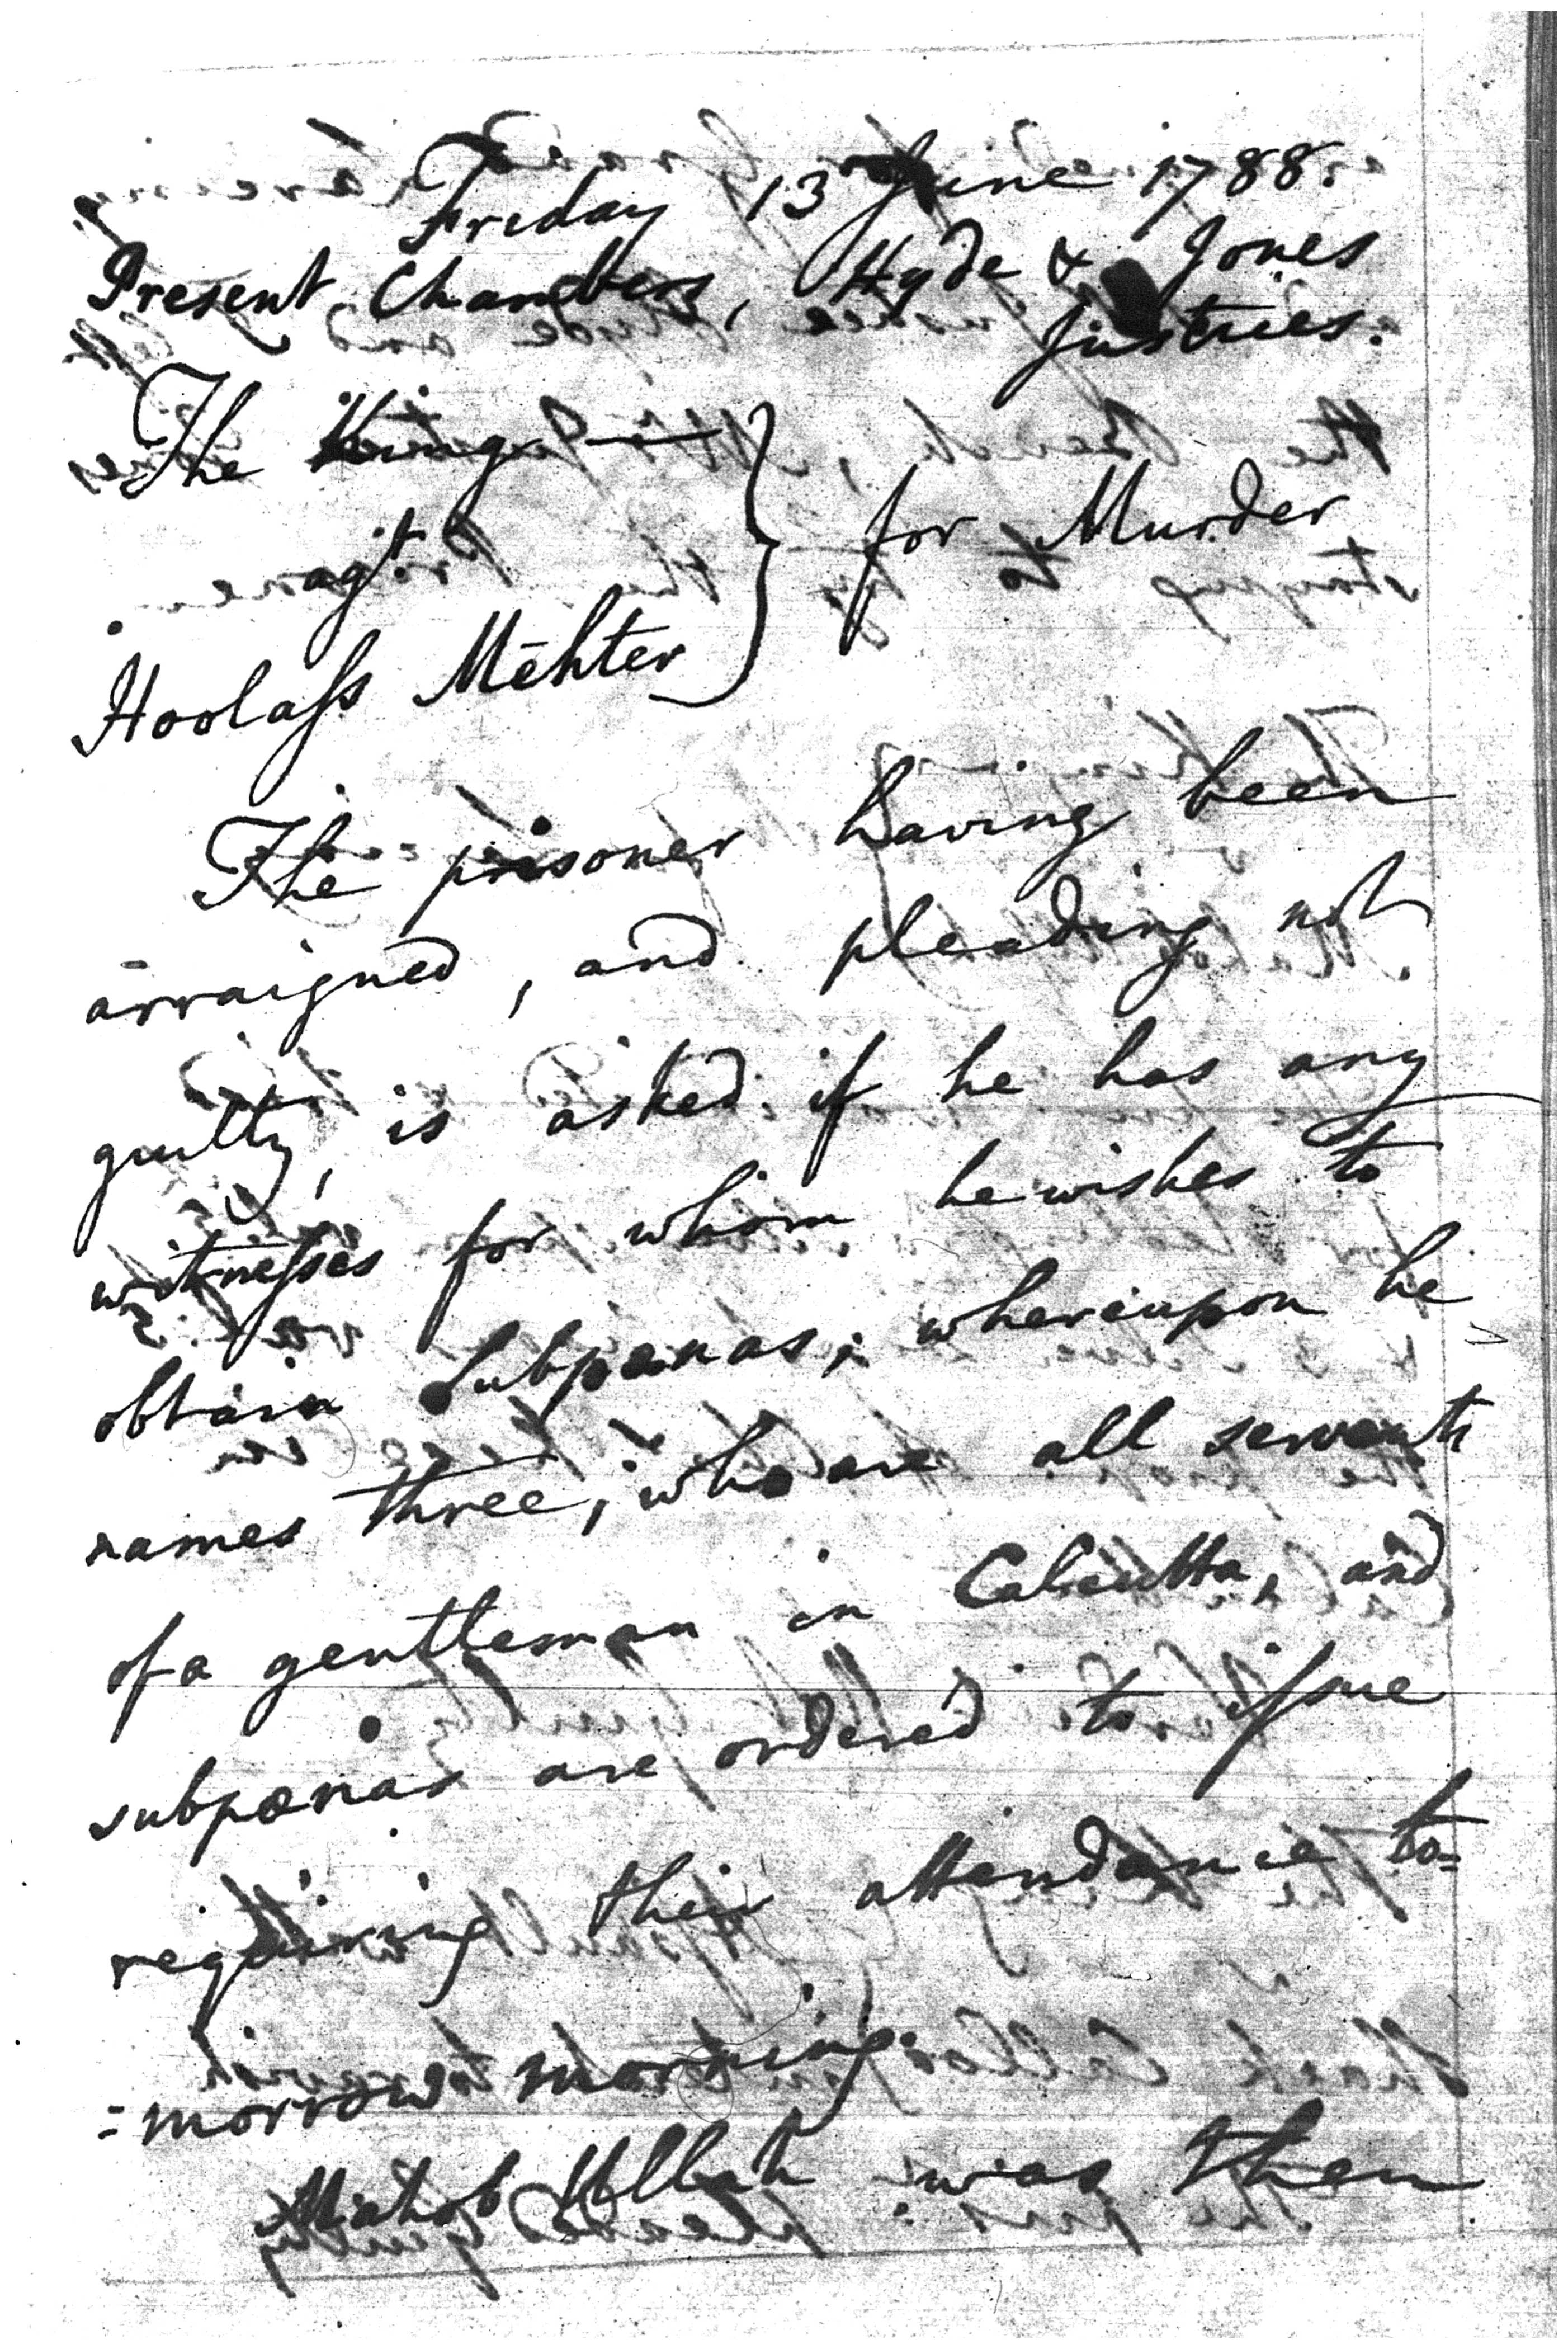 Friday 13 June 1788.
Present Chambers, Hyde & Jones
Justices.
The King
agt.
Hoolass Mehter } for Murder
The prisoner having been
arraigned, and pleading not
guilty, is asked if he has any
witnesses for whom he wishes to
obtain Subpœnas; whereupon he
names three, who are all servants
of a gentleman in Calcutta, and
subpœnas are ordered to issue
requiring their attendance to=
=morrow morning.
Mahob Ullah was then